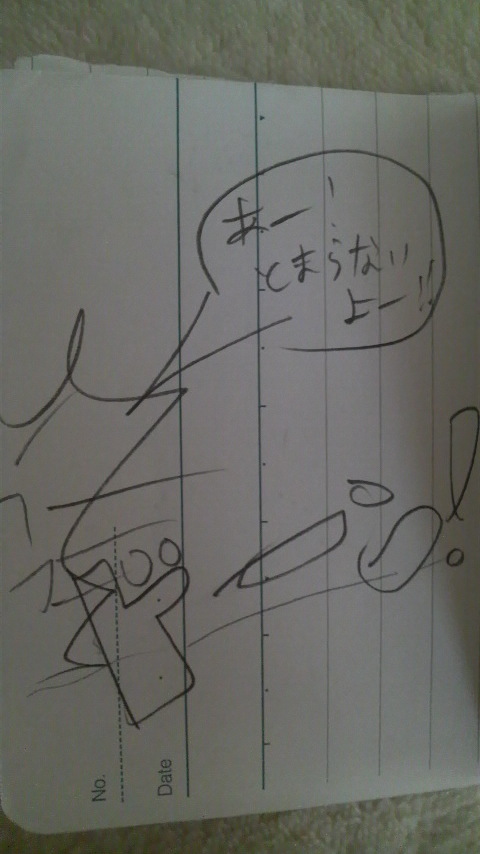 あー!
とまらない
よー!!
No.
Date